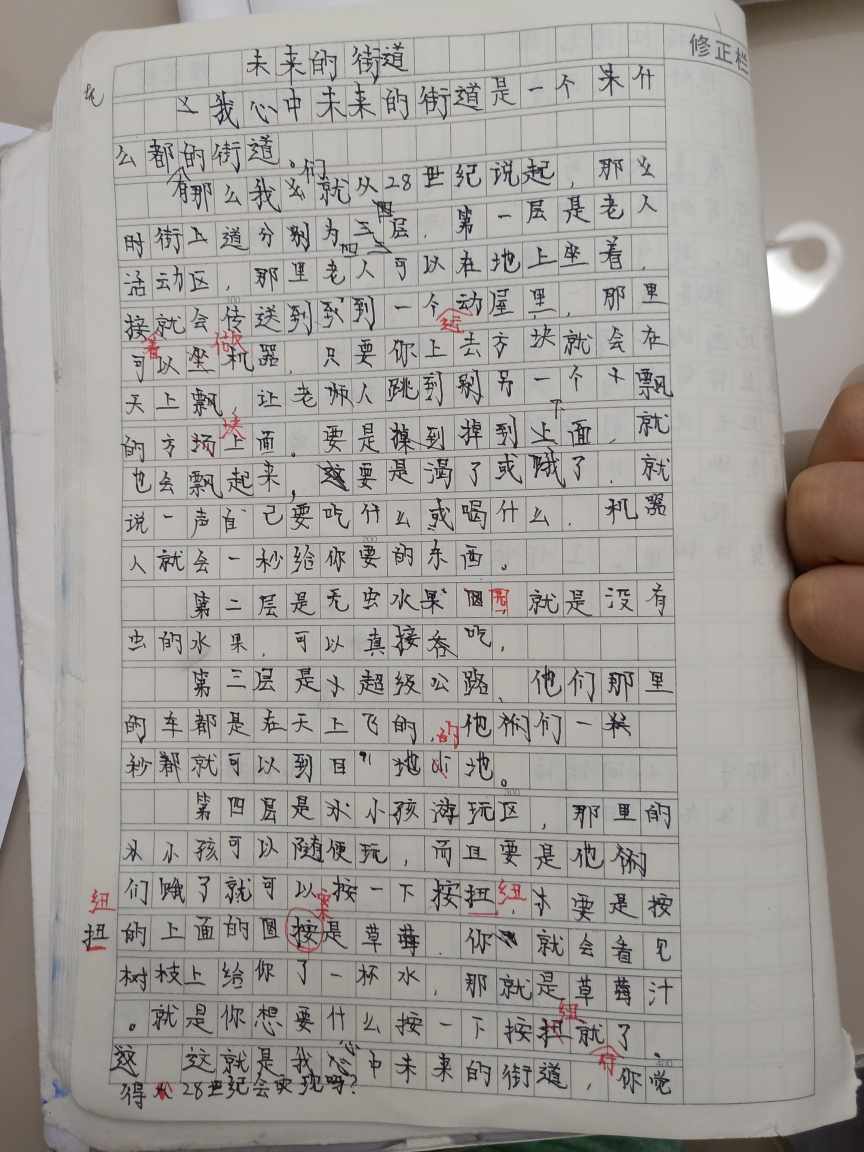 修正栏
未来的街道
我心中未来的街道是一个什
么都有的街道。
那么我们就从28世纪说起，那
时街上道分别为四层，第一层是老人
活动区，那里老人可以在地上坐着，
接着就会传送到一个运动屋里，那里
可以做机器，只要你上去方块就会在
天上飘，让老人跳到另一个飘
的方块上面，要是掉到下面，就
也会飘起来，要是渴了或饿了，就
说一声自己要吃什么或喝什么，机器
人就会一秒给你要的东西。
第二层是无虫水果园，就是没有
虫的水果，可以直接吞吃，
第三层是超级公路，他们那里
的车都是在天上飞的，他们一
秒就可以到目的地。
第四层是小孩游玩区，那里的
小孩可以随便玩，而且要是他
们饿了就可以按一下按扭纽，要是按
纽
扭的上面的图案是草莓，你就会看见
树枝上给你了一杯水，那就是草莓汁
。就是你想要什么按一下按纽就行了、
这就是我心中未来的街道，你觉
得28世纪会实现吗？